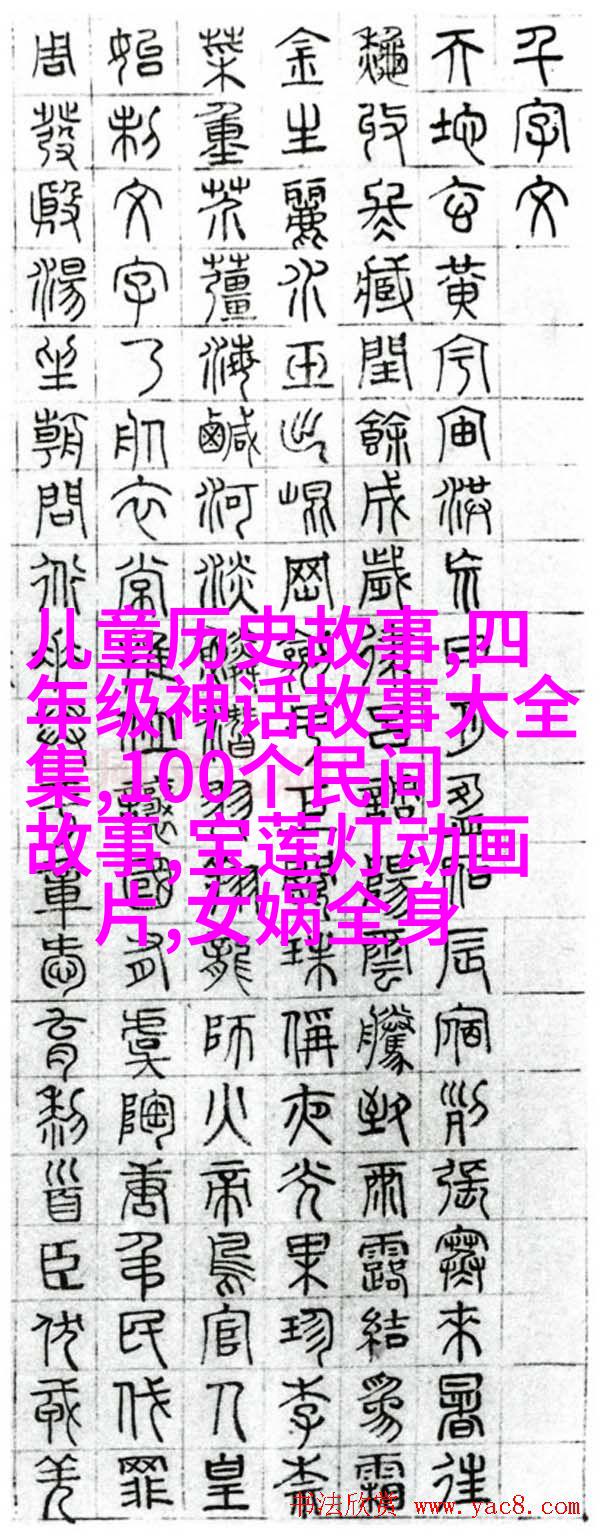 千字文
天地玄黃宇宙洪荒日月盈昃辰宿列張寒來暑往
秋收冬藏閏餘成歲律呂調陽雲騰致雨露結為霜
金生麗水玉出崑岡劍號巨闕珠稱夜光果珍李柰
菜重芥薑海鹹河淡鱗潛羽翔龍師火帝鳥官人皇
始制文字乃服衣裳推位讓國有虞陶唐弔民伐罪
周發殷湯坐朝問道垂拱平章愛育黎首臣伏戎羌
儿童历史故事,四
年级神话故事大全
集,100个民间
故事,宝莲灯动画
片,女娲全身
书法欣赏 www.yac8.com